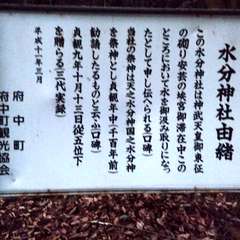 水分神社由緒
この水分神社は神武天皇御東征
の砌り安芸の埃宮御滞在中この
ところにおいて水を御汲み取りになっ
たとして申し伝へられる(口碑)
当社の祭神は天之水分神国之水分神
を祭神とし貞観年中(千百年前)
勧請したるものと云ふ(口碑)
貞観九年十月十三日従五位下
を贈らる(三代実録)
平成十二年三月
府中町
府中町観光協会